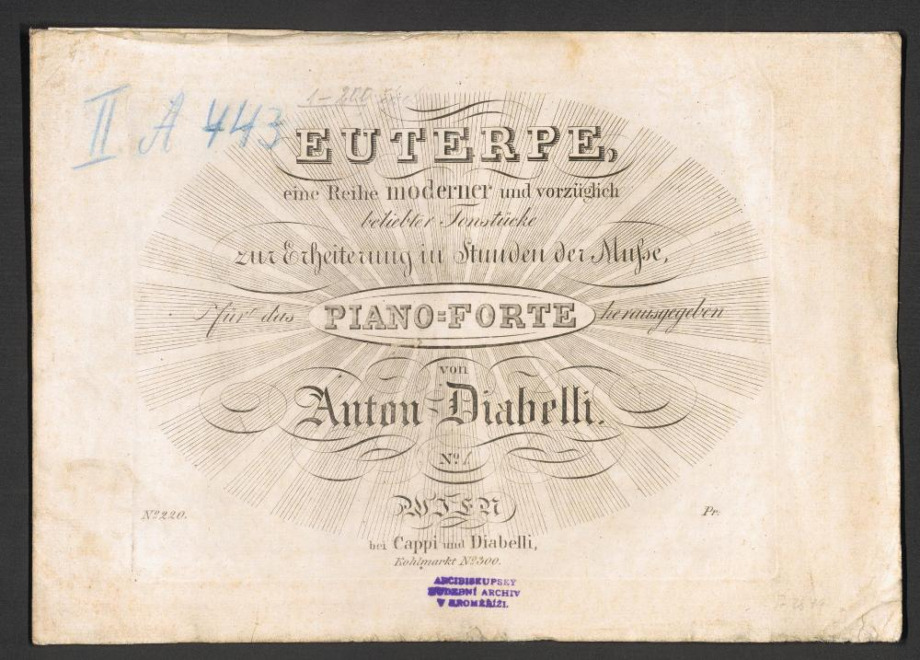 II A 443
1-200
EUTERPE,
eine Reihe moderner und vorzüglich
beliebter Tonstücke
zur Erheiterung in Stunden der Muſse,
für das PIANO=FORTE herausgegeben
von
Anton Diabelli.
Nº 1
WIEN
Nº 220. Pr.
bei Cappi und Diabelli,
Kohlmarkt Nº 300.
ARCIBISKUPSKÝ
HUDEBNÍ ARCHIV
V KROMĚŘÍŽI.